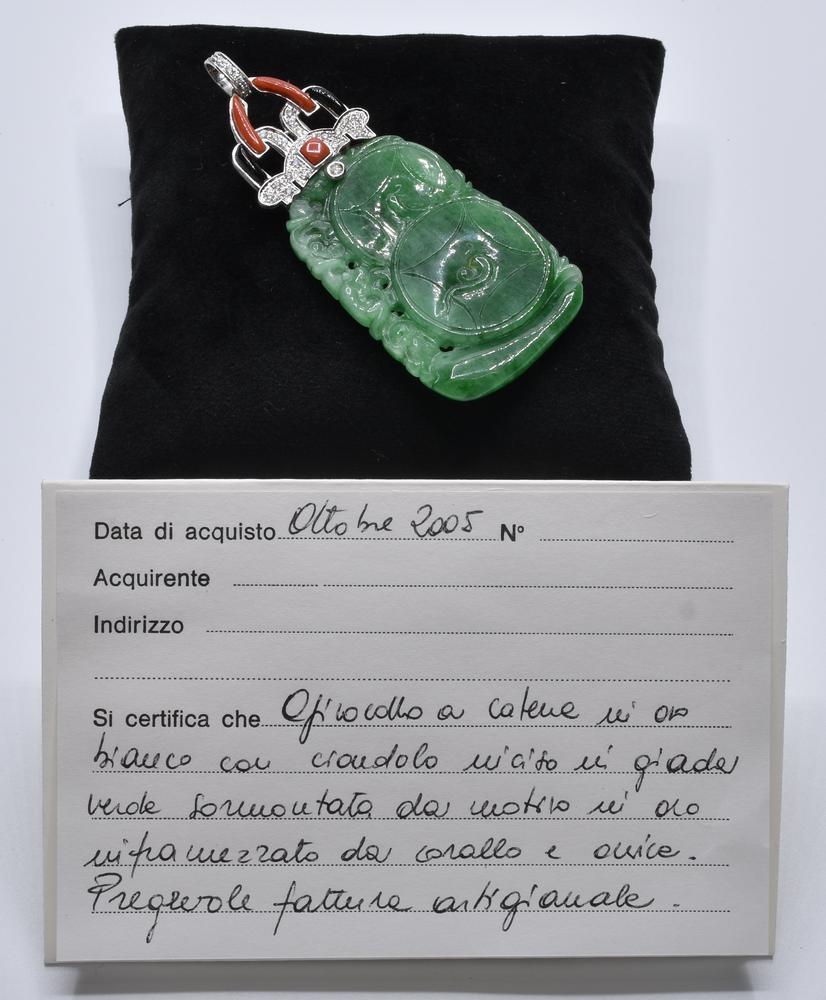 Data di acquisto Ottobre 2005 N°
Acquirente
Indirizzo
Si certifica che Girocollo a catena in oro
bianco con ciondolo inciso in giada
verde sormontata da motivo in oro
inframezzato da corallo e onice.
Pregevole fattura artigianale.